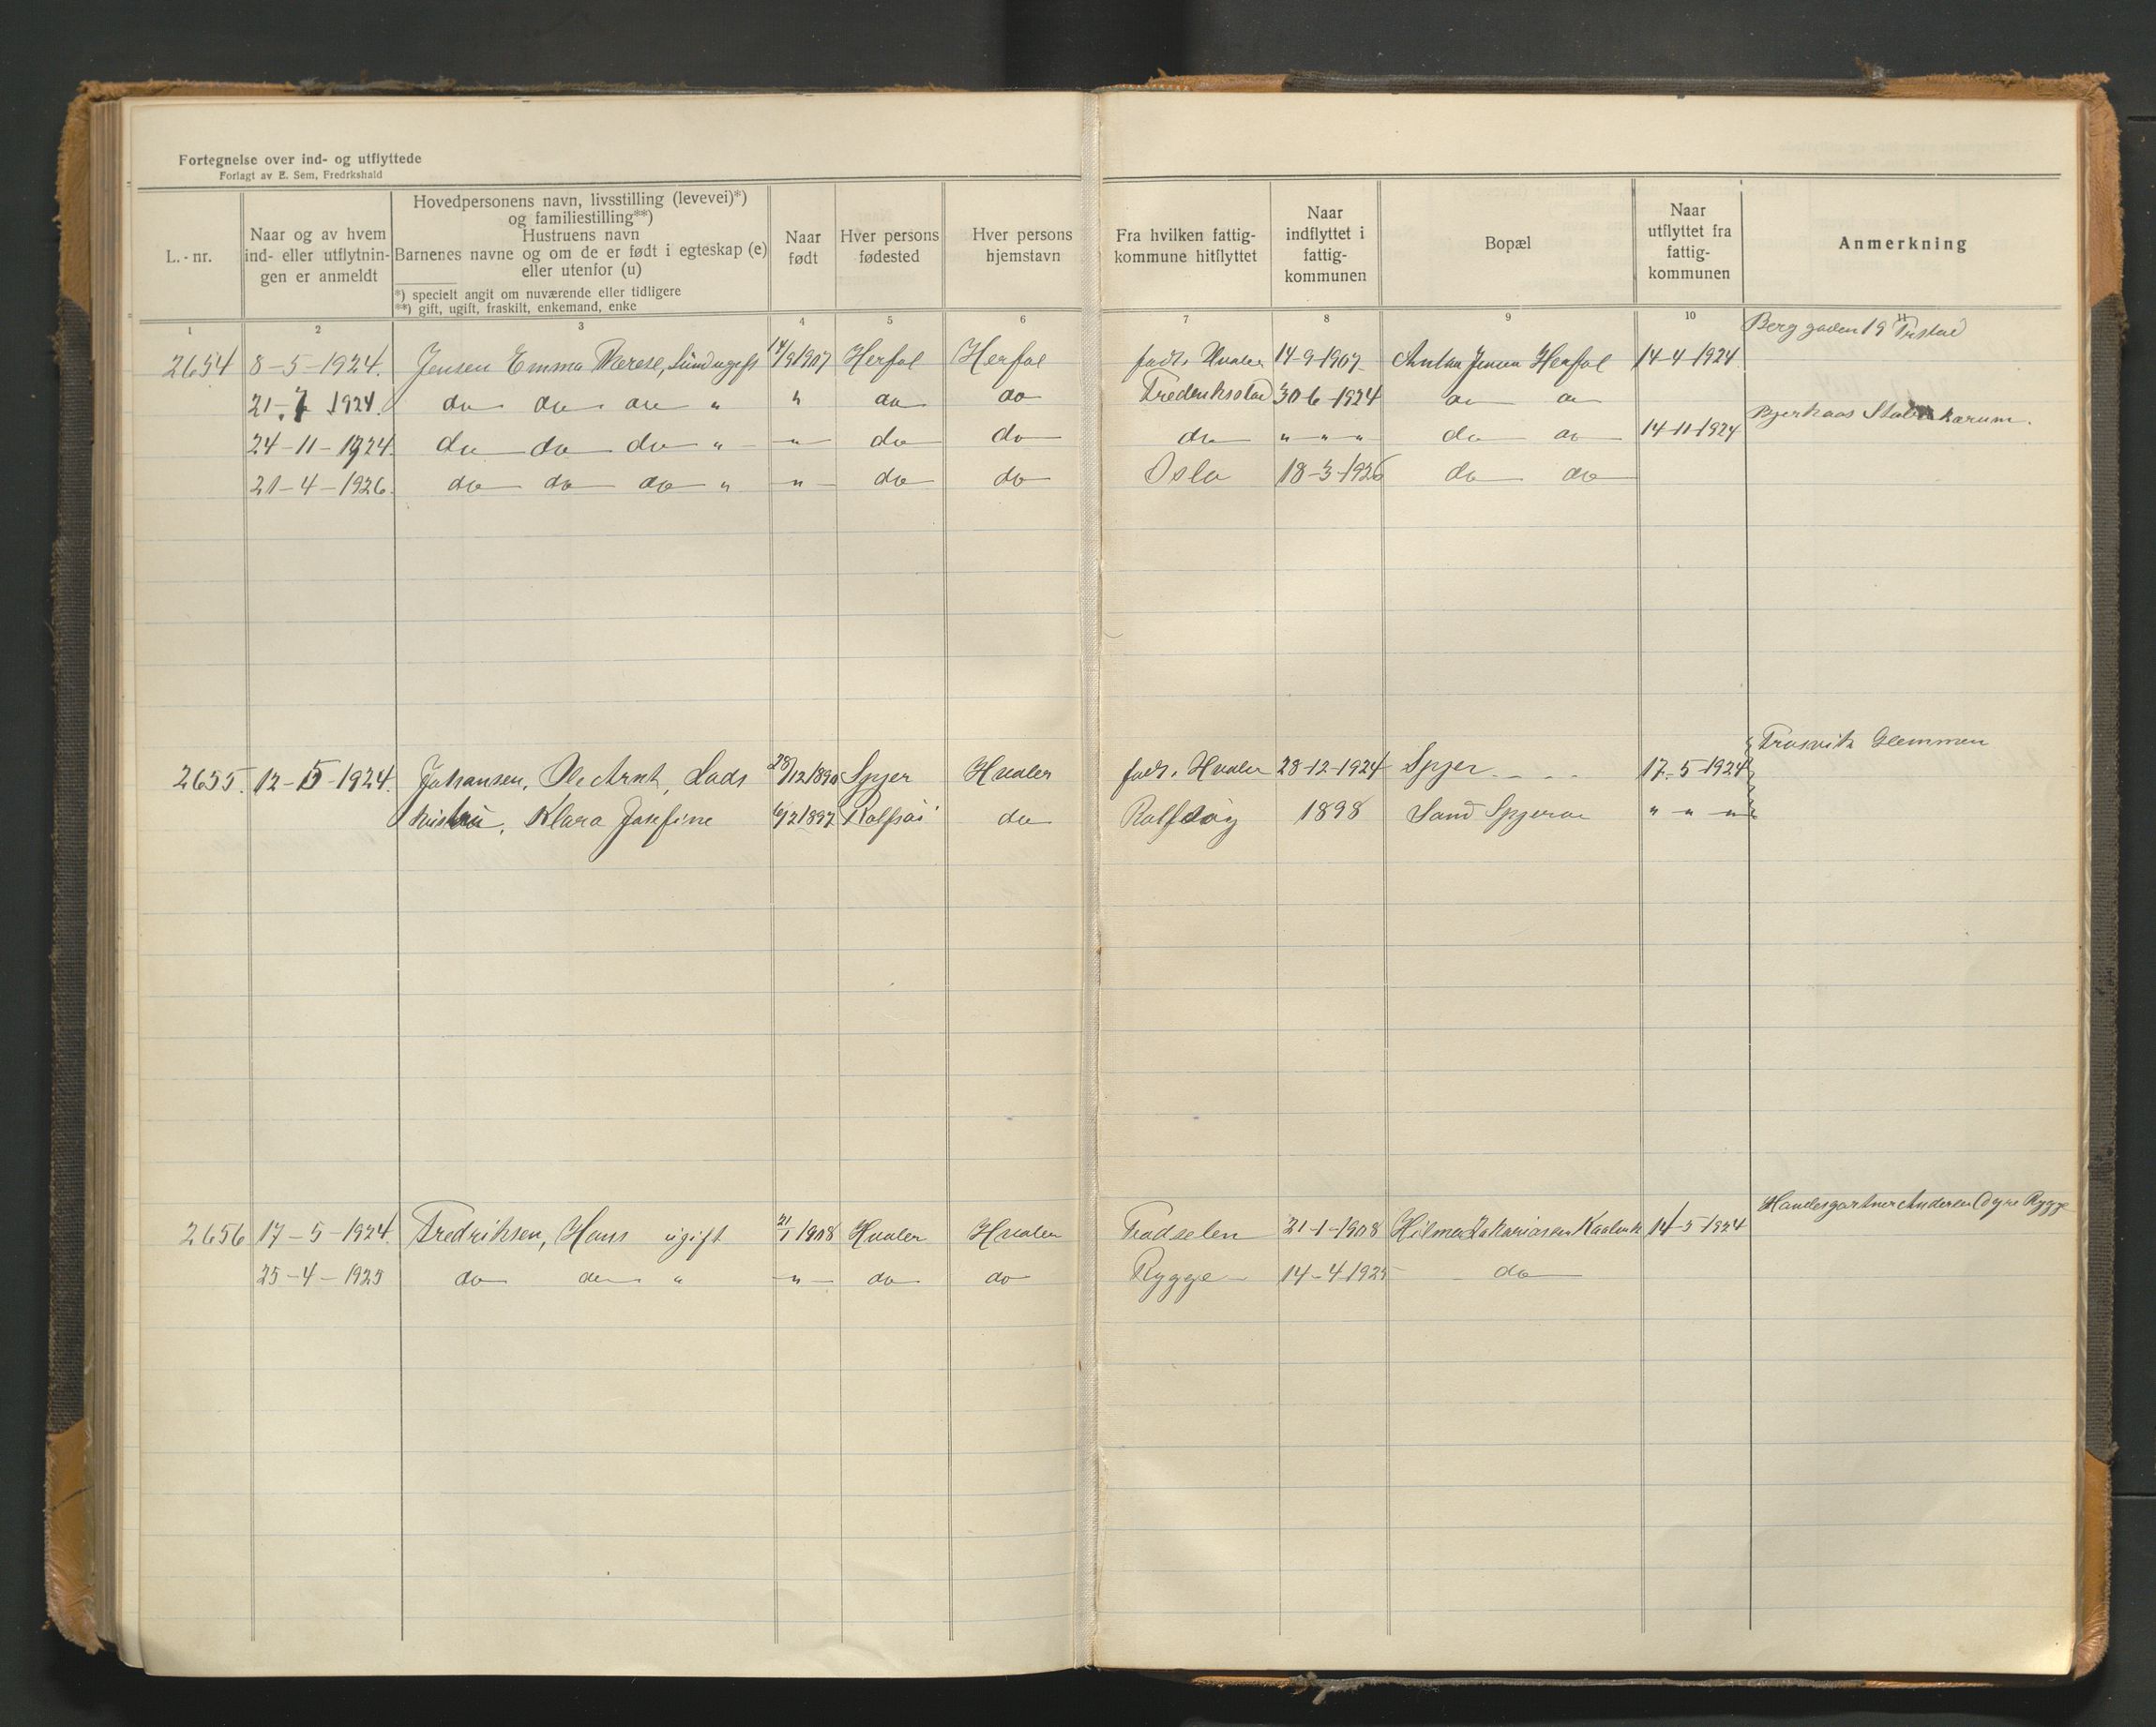 Fortegnelse over ind- og utflyttede
Forlagt av E. Sem, Fredrkshald
L.-nr.
Naar og av hvem
ind- eller utflytnin-
gen er anmeldt
Hovedpersonens navn, livsstilling (levevei)*)
og familiestilling**)
Hustruens navn
Barnenes navne og om de er født i egteskap (e)
eller utenfor (u)
*) specielt angit om nuværende eller tidligere
**) gift, ugift, fraskilt, enkemand, enke
Naar
født
Hver persons
fødested
Hver persons
hjemstavn
Fra hvilken fattig-
kommune hitflyttet
Naar
indflyttet i
fattig-
kommunen
Bopæl
Naar
utflyttet fra
fattig-
kommunen
Anmerkning
1 2 3 4 5 6 7 8 9 10 11
Berggaden 19
2654 8-5-1924. Jensen Emma Therese, ugift 14/9 1907 Herføl Herføl født Hvaler 14-9-1907 Anton Jensen Herføl 14-4-1924
21-7 1924. do do do " " do do Fredrikstad 30 6-1924 do do
Bjerkaas
24-11-1924. do do do " " do do do " " " do do 14-11-1924
21-4-1926. do do do " " do do Oslo 18-3-1926 do do
Trosvik Glemmen
2655. 12-5-1924. Johansen, Ole Arnt, Lods 28/12 1890 Spjær Hvaler født Hvaler 28-12-1924 Spjær 17-5-1924
hustru, Klara Josefine 6/2 1897 Rolfsøi do Rolfsøy 1898 Sand Spjærø " " "
Handelsgartner Andersen Rygge
2656 17-5-1924. Fredriksen, Hans ugift 21/1 1908 Hvaler Hvaler Fødselen 21-1-1908 Hilmar Zakariasen 14-5-1924
25-4-1925 do do " " do do Rygge 14-4-1925 do